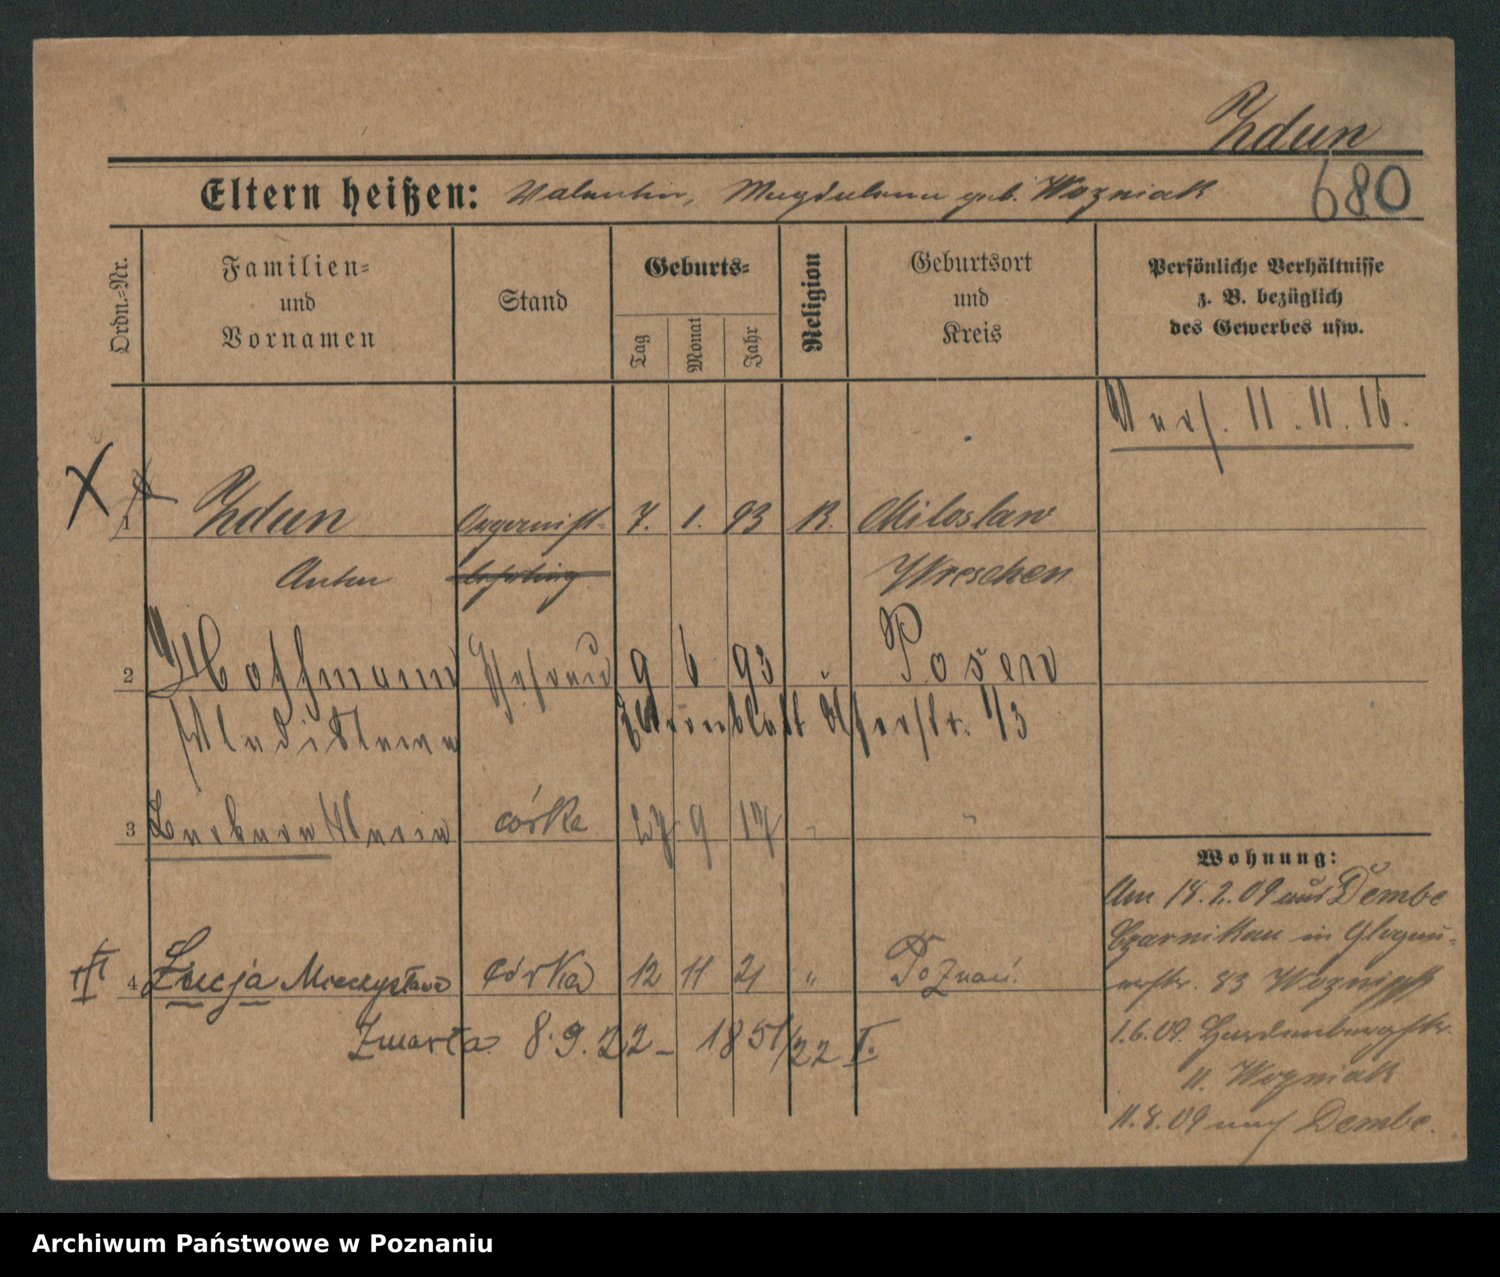 Zdun
680
Eltern heißen: Valentin, Magdalena geb. Wozniak
Ordn.-Nr.
Familien- und Vornamen
Stand
Geburts-
Tag
Monat
Jahr
Religion
Geburtsort und Kreis
Persönliche Verhältnisse
z. B. bezüglich
des Gewerbes usw.
Verh. 11.11.16.
1 Zdun Organist- 7. 1. 93 K. Miloslaw
Anton lehrling Wreschen
2 Hoffmann Ehefrau 9 6 93 " Posen
Wladislawa
3 Barbara Maria córka 27 9 17 " "
Wohnung:
Am 18.2.09 aus Dembe
Czarnikau in Glogau-
erstr. 83 Wozniak
1.6.09. Hardenbergstr.
11. Wozniak
11.8.09 nach Dembe.
II 4 Łucja Mieczysława córka 12 11 21 " Poznań.
Zmarła 8.9.22 - 1851/22 I.
Archiwum Państwowe w Poznaniu